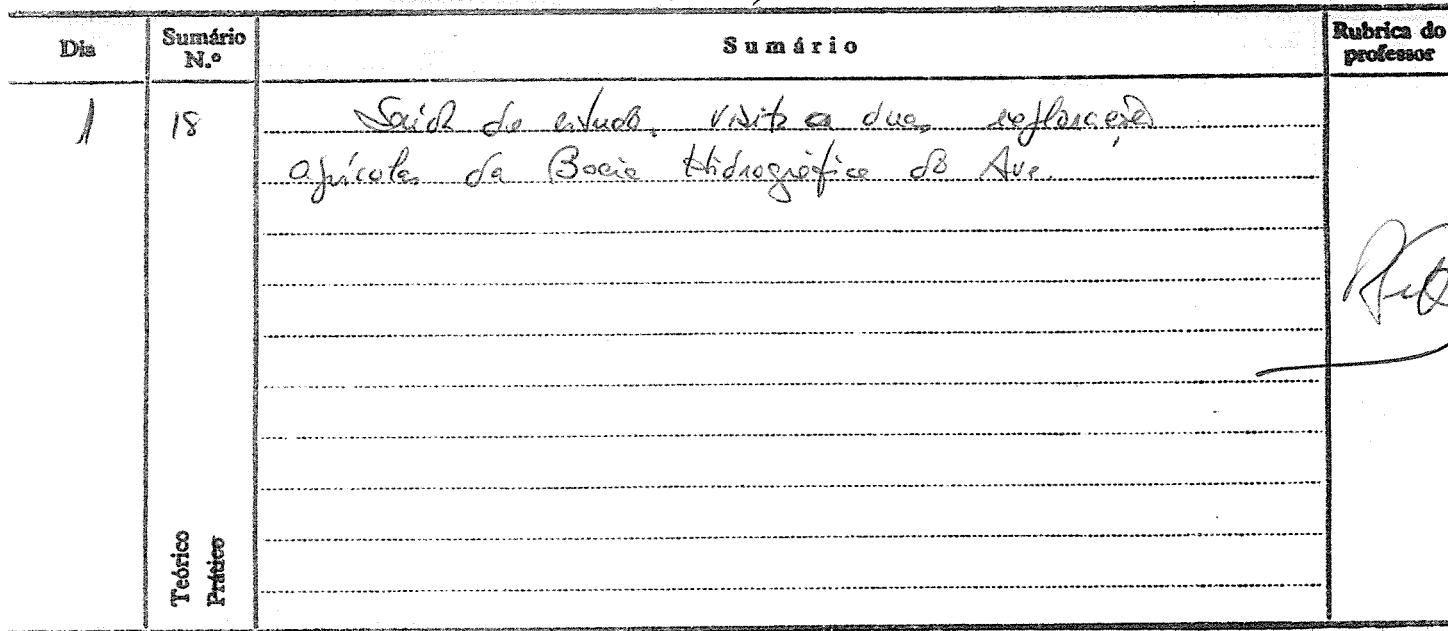 Dia
Sumário N.º
Sumário
Rubrica do professor
1
18
Saída de estudo, visita a duas explorações
agrícolas da Bacia Hidrográfica do Ave.
Teórico
Prático